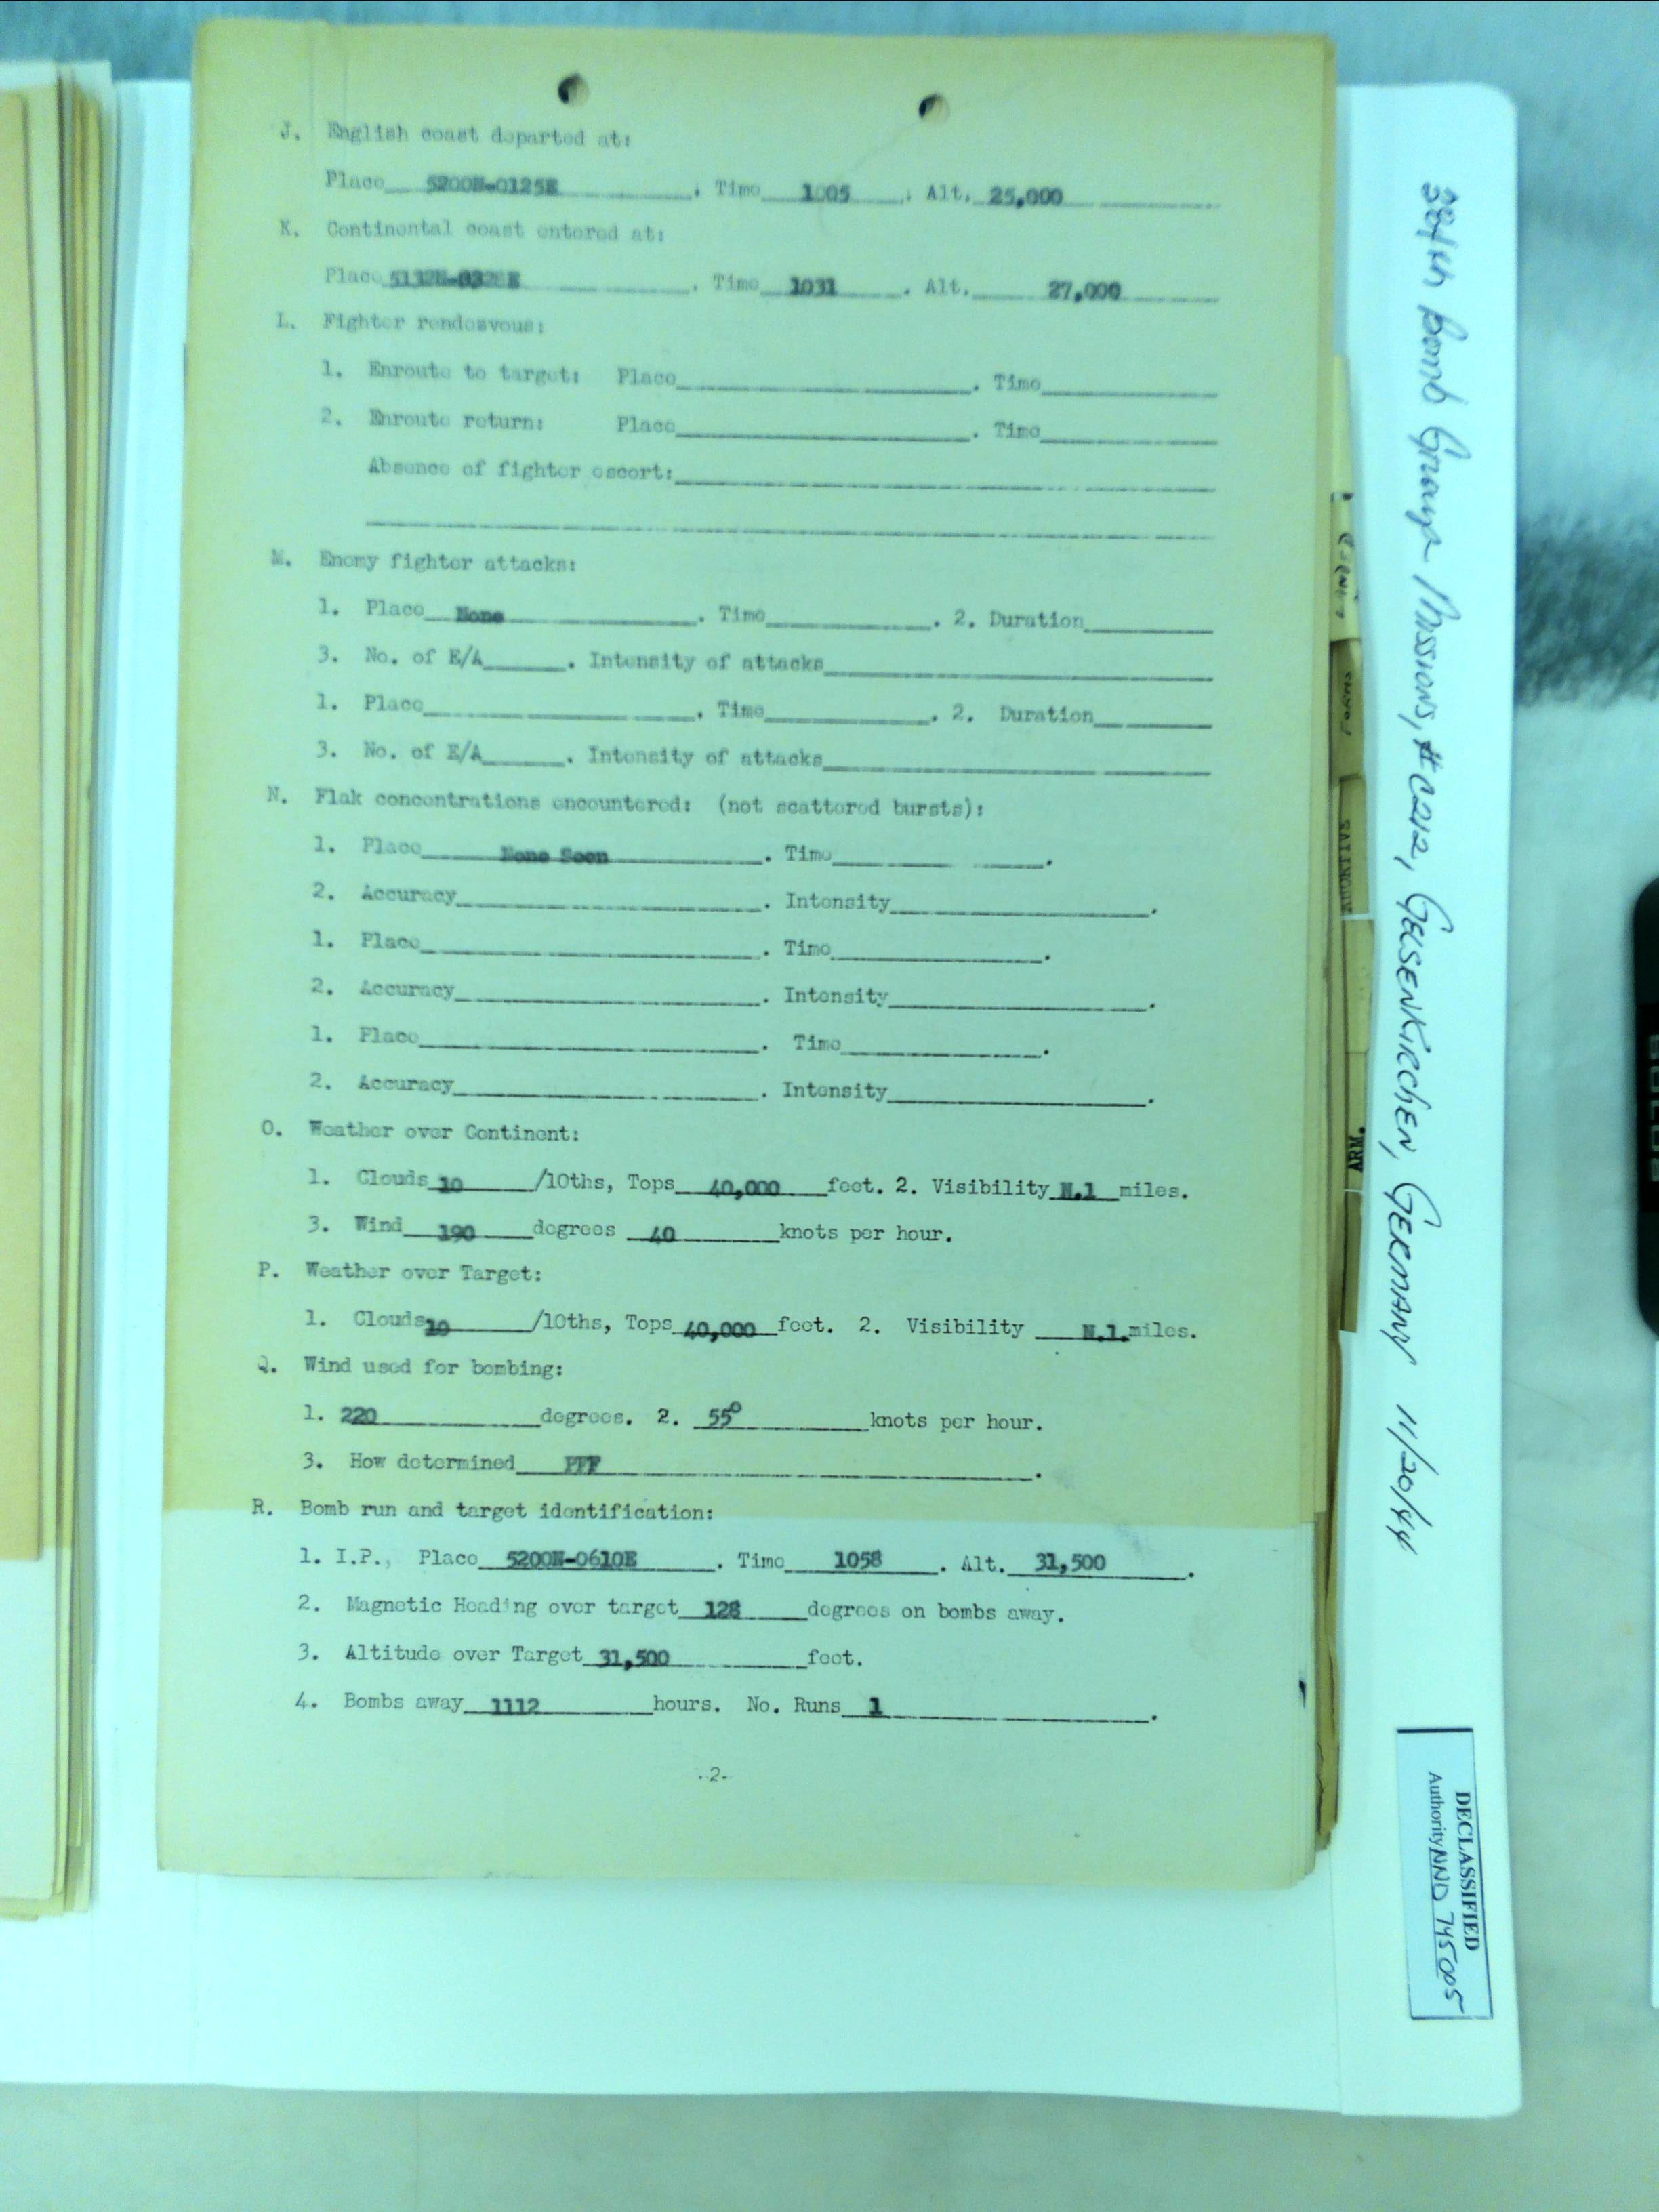 J. English coast departed at:
Place 5200N-0125E. Time 1005. Alt. 25,000
K. Continental coast entered at:
Place Time 1031. Alt. 27,000
L. Fighter rendesvous:
1. Enroute to target: Place. Time
2. Enroute return: Place. Time
Absence of fighter escort:
M. Enemy fighter attacks:
1. Place None. Time. 2. Duration
3. No. of E/A. Intensity of attacks
1. Place. Time. 2. Duration
3. No. of E/A. Intensity of attacks
N. Flak concentrations encountered: (not scattered bursts):
1. Place None Seen. Time.
2. Accuracy. Intensity.
1. Place. Time.
2. Accuracy. Intensity.
1. Place. Time.
2. Accuracy. Intensity.
O. Weather over Continent:
1. Clouds 10 /10ths, Tops 40,000 feet. 2. Visibility N.1 miles.
3. Wind 190 degrees 40 knots per hour.
P. Weather over Target:
1. Clouds 10 /10ths, Tops 40,000 feet. 2. Visibility N.1. miles.
Q. Wind used for bombing:
1. 220 degrees. 2. 55° knots per hour.
3. How determined PFF.
R. Bomb run and target identification:
1. I.P., Place 5200N-0610E. Time 1058. Alt. 31,500.
2. Magnetic Heading over target 128 degrees on bombs away.
3. Altitude over Target 31,500 feet.
4. Bombs away 1112 hours. No. Runs 1.
-2-
FORMS
ABORTIVE
ARM.
384th Bomb Group Missions, #C212, GELSENKIRCHEN, GERMANY 11/20/44
DECLASSIFIED
Authority NND 745005